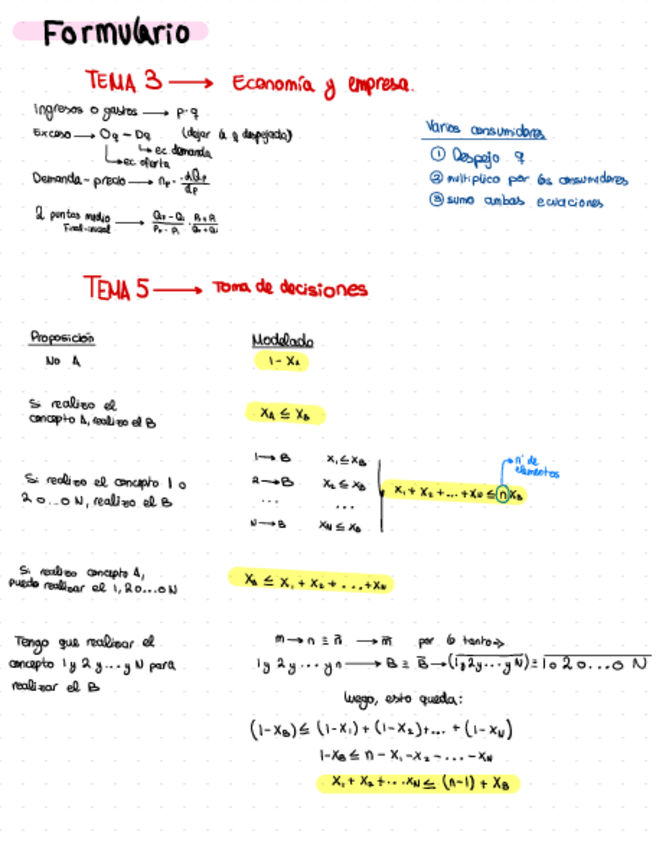 Formulario
TEMA 3 → Economía y empresa.
Ingresos o gastos → p·q
Exceso → Oq - Dq (dejar la q despejada)
ec demanda
ec oferta
Demanda - precio → np · dQp/dp
2 puntos medio → Q_F - Q_i / P_F - P_i · P_F + P_i / Q_F + Q_i
Final-inicial
Varios consumidores
① Despejo q
② multiplico por los consumidores
③ sumo ambas ecuaciones
TEMA 5 → Toma de decisiones
Proposición Modelado
No A 1 - X_A
Si realizo el
concepto A, realizo el B X_A ≤ X_B
Si realizo el concepto 1 o
2 o...o N, realizo el B
1 → B X₁ ≤ X_B
2 → B X₂ ≤ X_B
... ...
N → B X_N ≤ X_B
X₁ + X₂ + ... + X_N ≤ n X_B
nº de
elementos
Si realizo concepto A,
puedo realizar el 1, 2 o...o N
X_A ≤ X₁ + X₂ + ... + X_N
Tengo que realizar el
concepto 1 y 2 y ... y N para
realizar el B
m → n ≡ n̅ → m̅ por lo tanto →
1 y 2 y ... y n → B ≡ B̅ → (1 y 2 y ... y N)‾ ≡ 1 o 2 o ... o N‾
luego, esto queda:
(1-X_B) ≤ (1-X₁) + (1-X₂) + ... + (1-X_N)
1-X_B ≤ n - X₁ - X₂ - ... - X_N
X₁ + X₂ + ... X_N ≤ (n-1) + X_B